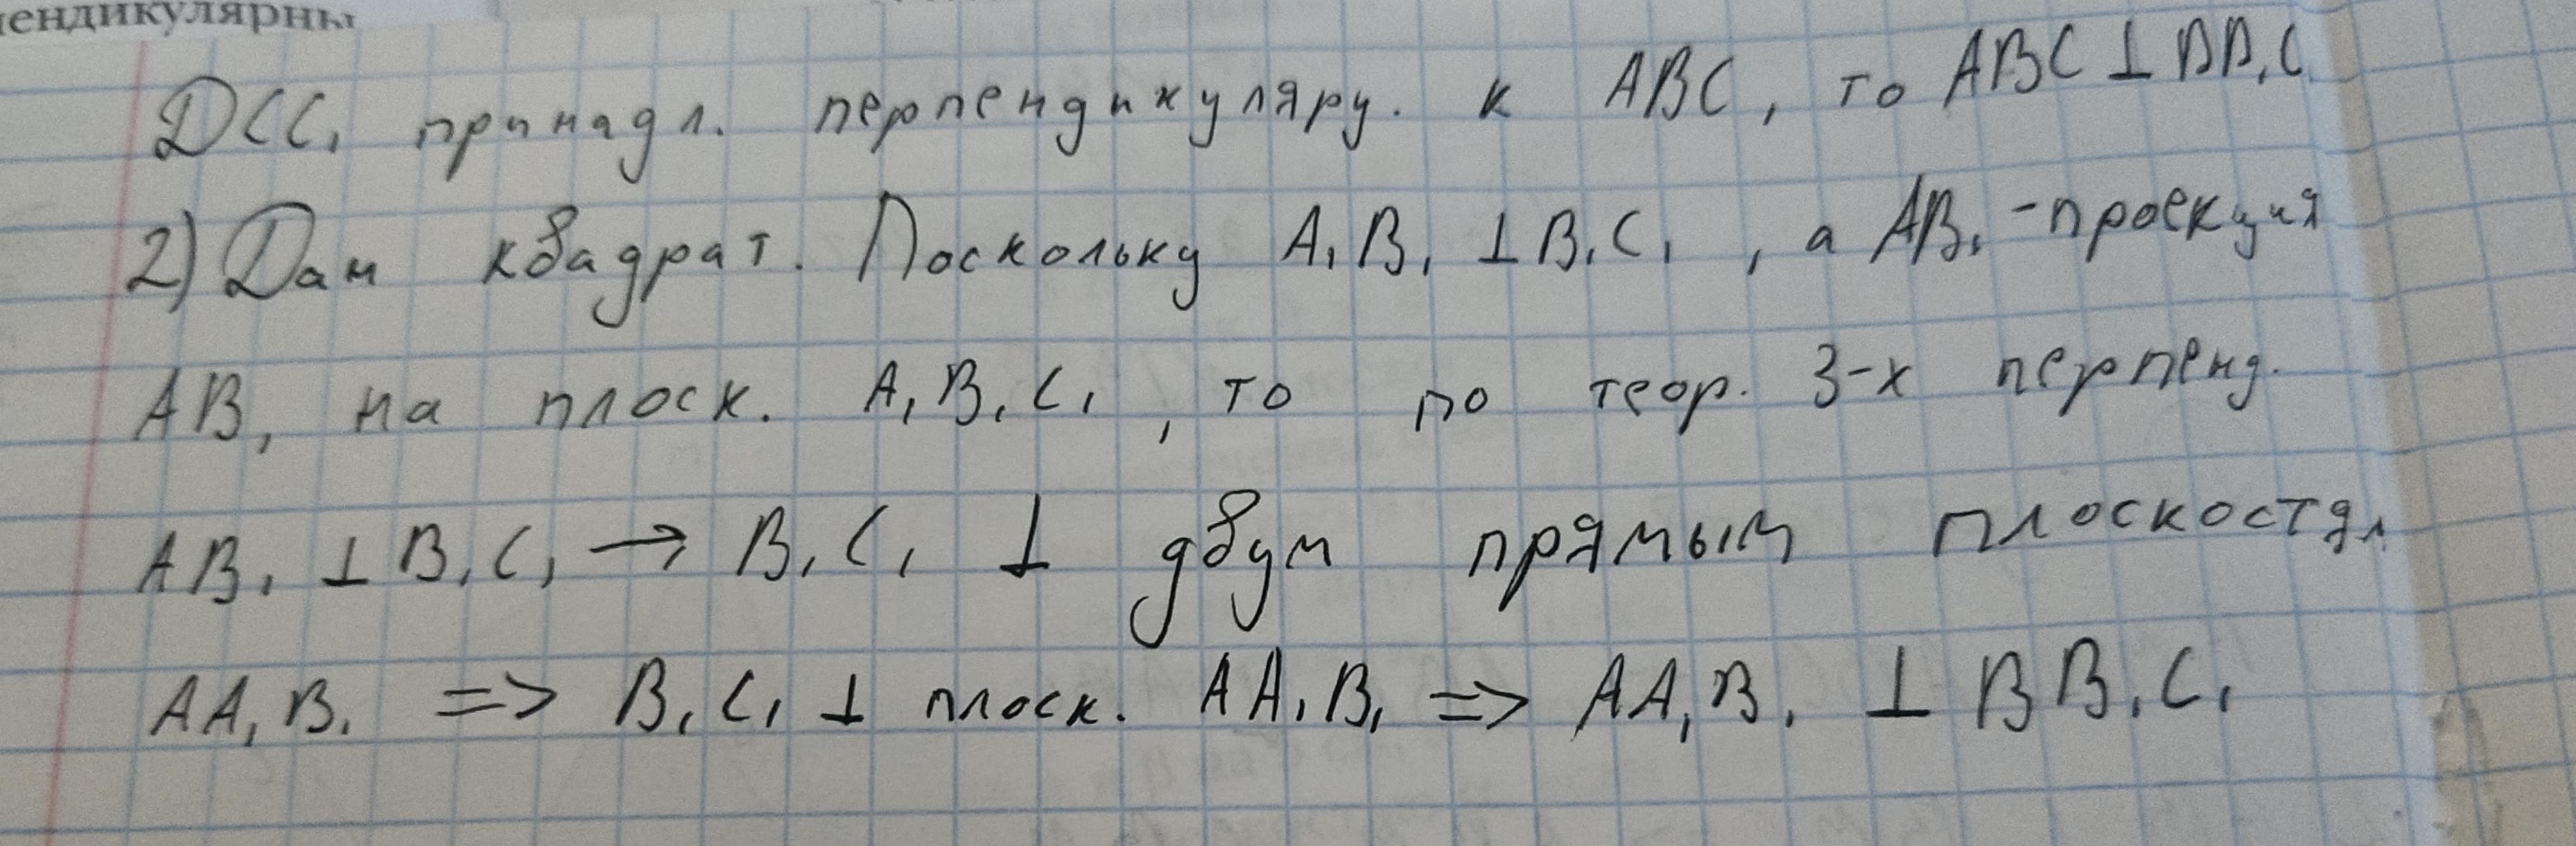 пендикулярны
DCC₁ принадл. перпендикуляру. к ABC, то ABC ⊥ DD₁C₁
2) Дан квадрат. Поскольку A₁B₁ ⊥ B₁C₁, а AB₁ - проекция
AB₁ на плоск. A₁B₁C₁, то по теор. 3-х перпенд.
AB₁ ⊥ B₁C₁ → B₁C₁ ⊥ двум прямым плоскости
AA₁B₁ => B₁C₁ ⊥ плоск. AA₁B₁ => AA₁B₁ ⊥ BB₁C₁